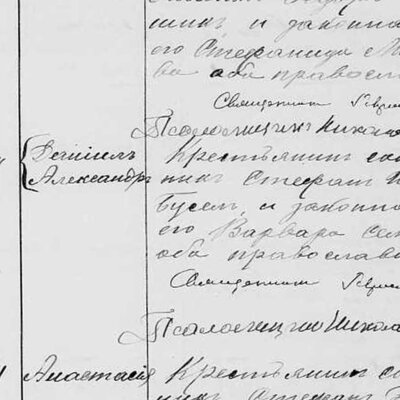 шикъ и законна
его Стефанида
ва оба православ
Священникъ Гаври
Псаломщикъ Никола
Даніилъ
Александръ
Крестьянинъ соб
никъ Стефанъ
Бусел, и законна
его Варвара Сем
оба православн
Священникъ Гаври
Псаломщикъ Никола
Анастасія
Крестьянинъ со
никъ Стефанъ